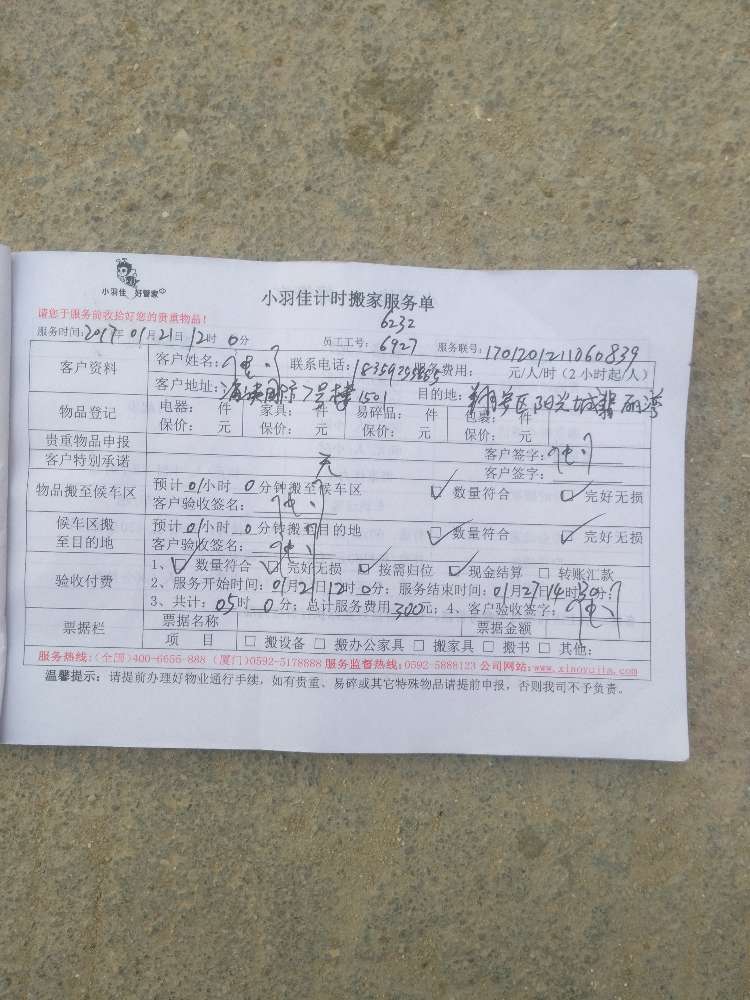 小羽佳 好管家
小羽佳计时搬家服务单
请您于服务前收拾好您的贵重物品！
6232
服务时间：2017年01月21日12时0分 员工工号：6927 服务联号：1701201211060839
客户资料 客户姓名： 联系电话： 服务费用： 元/人/时（2小时起/人）
客户地址：海峡国际7号楼1501 目的地：翔安区阳光城翡丽湾
物品登记 电器： 件 家具： 件 易碎品： 件 包裹： 件
保价： 元 保价： 元 保价： 元 保价： 元
贵重物品申报 客户签字：
客户特别承诺 元 客户签字：
物品搬至候车区 预计01小时0分钟搬至候车区 数量符合 完好无损
客户验收签名：
候车区搬至目的地 预计01小时0分钟搬至目的地 数量符合 完好无损
客户验收签名：
验收付费 1、数量符合 完好无损 按需归位 现金结算 转账汇款
2、服务开始时间：01月21日12时0分；服务结束时间：01月21日14时30分；
3、共计：05时0分；总计服务费用300元；4、客户验收签字：
票据栏 票据名称 票据金额
项 目 搬设备 搬办公家具 搬家具 搬书 其他：
服务热线：（全国）400-6656-888（厦门）0592-5178888 服务监督热线：0592-5888123 公司网站：www.xiaoyujia.com
温馨提示：请提前办理好物业通行手续，如有贵重、易碎或其它特殊物品请提前申报，否则我司不予负责。